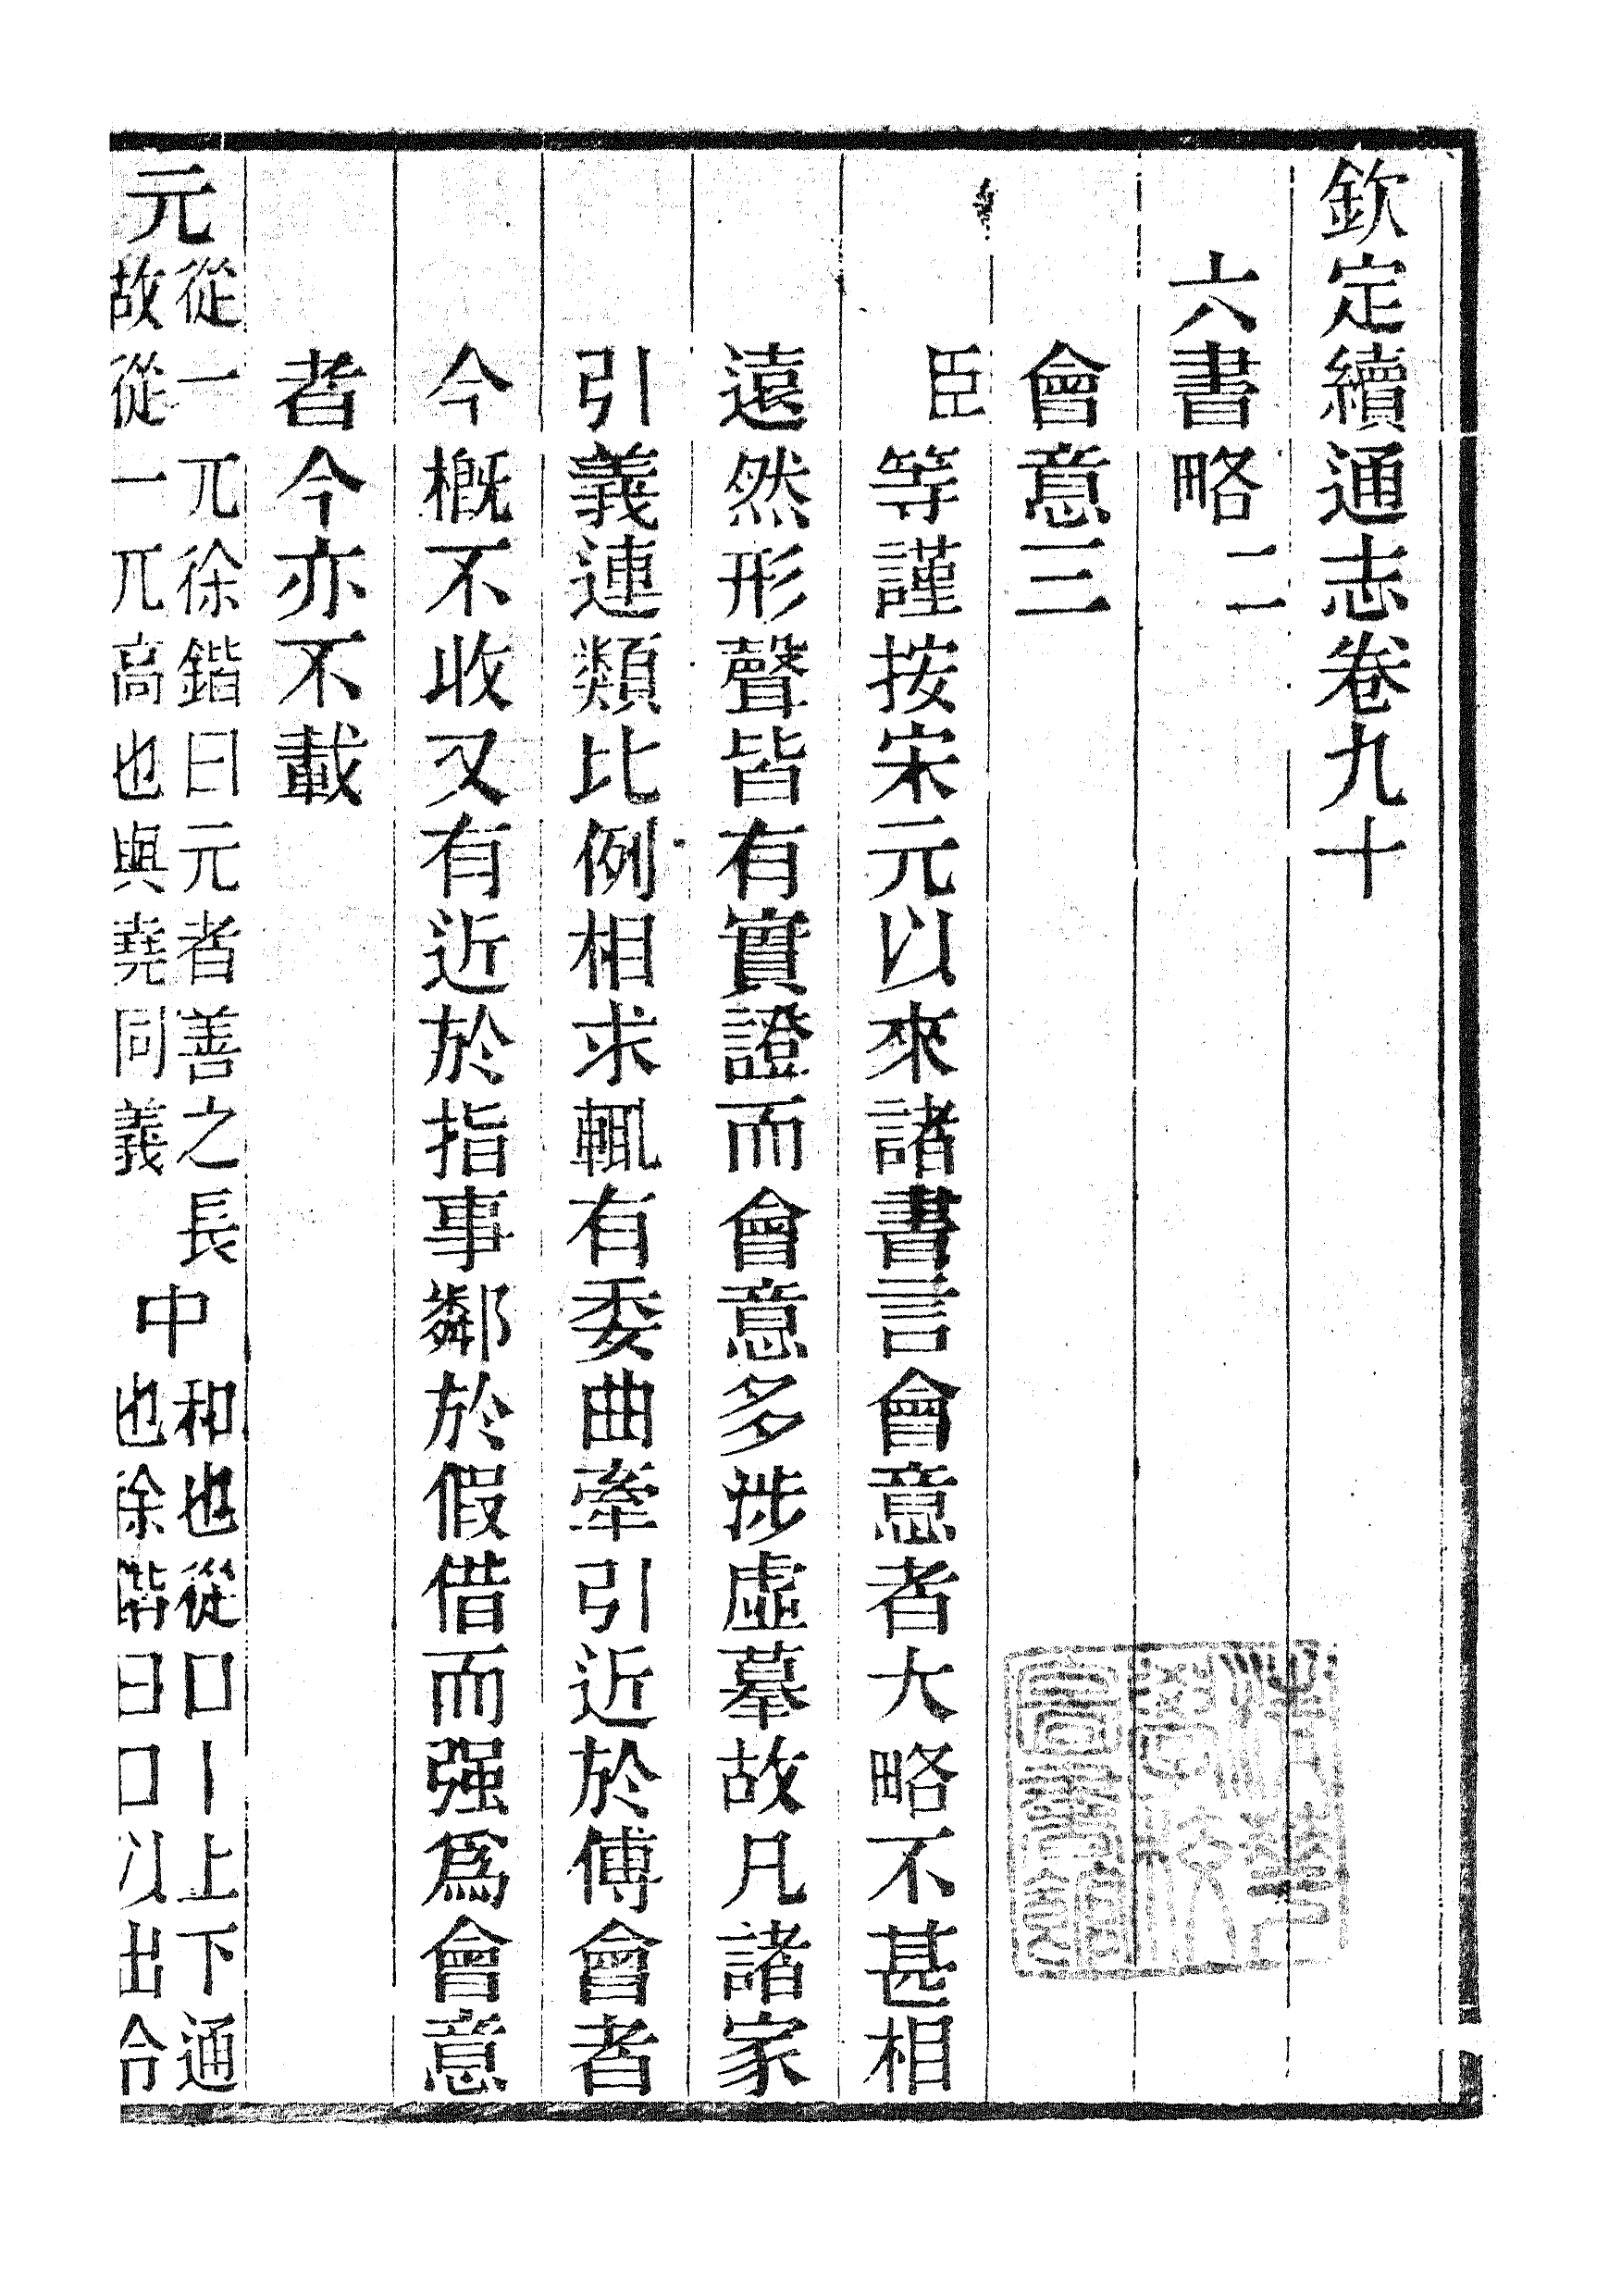 欽定續通志卷九十
六書略二
會意三
臣等謹按宋元以來諸書言會意者大略不甚相
遠然形聲皆有實證而會意多涉虛摹故凡諸家
引義連類比例相求輒有委曲牽引近於傅會者
今槪不收又有近於指事鄰於假借而强爲會意
者今亦不載
元從一兀徐鍇曰元者善之長
故從一兀高也與堯同義
中和也從口丨上下通
也徐鍇曰口以出令